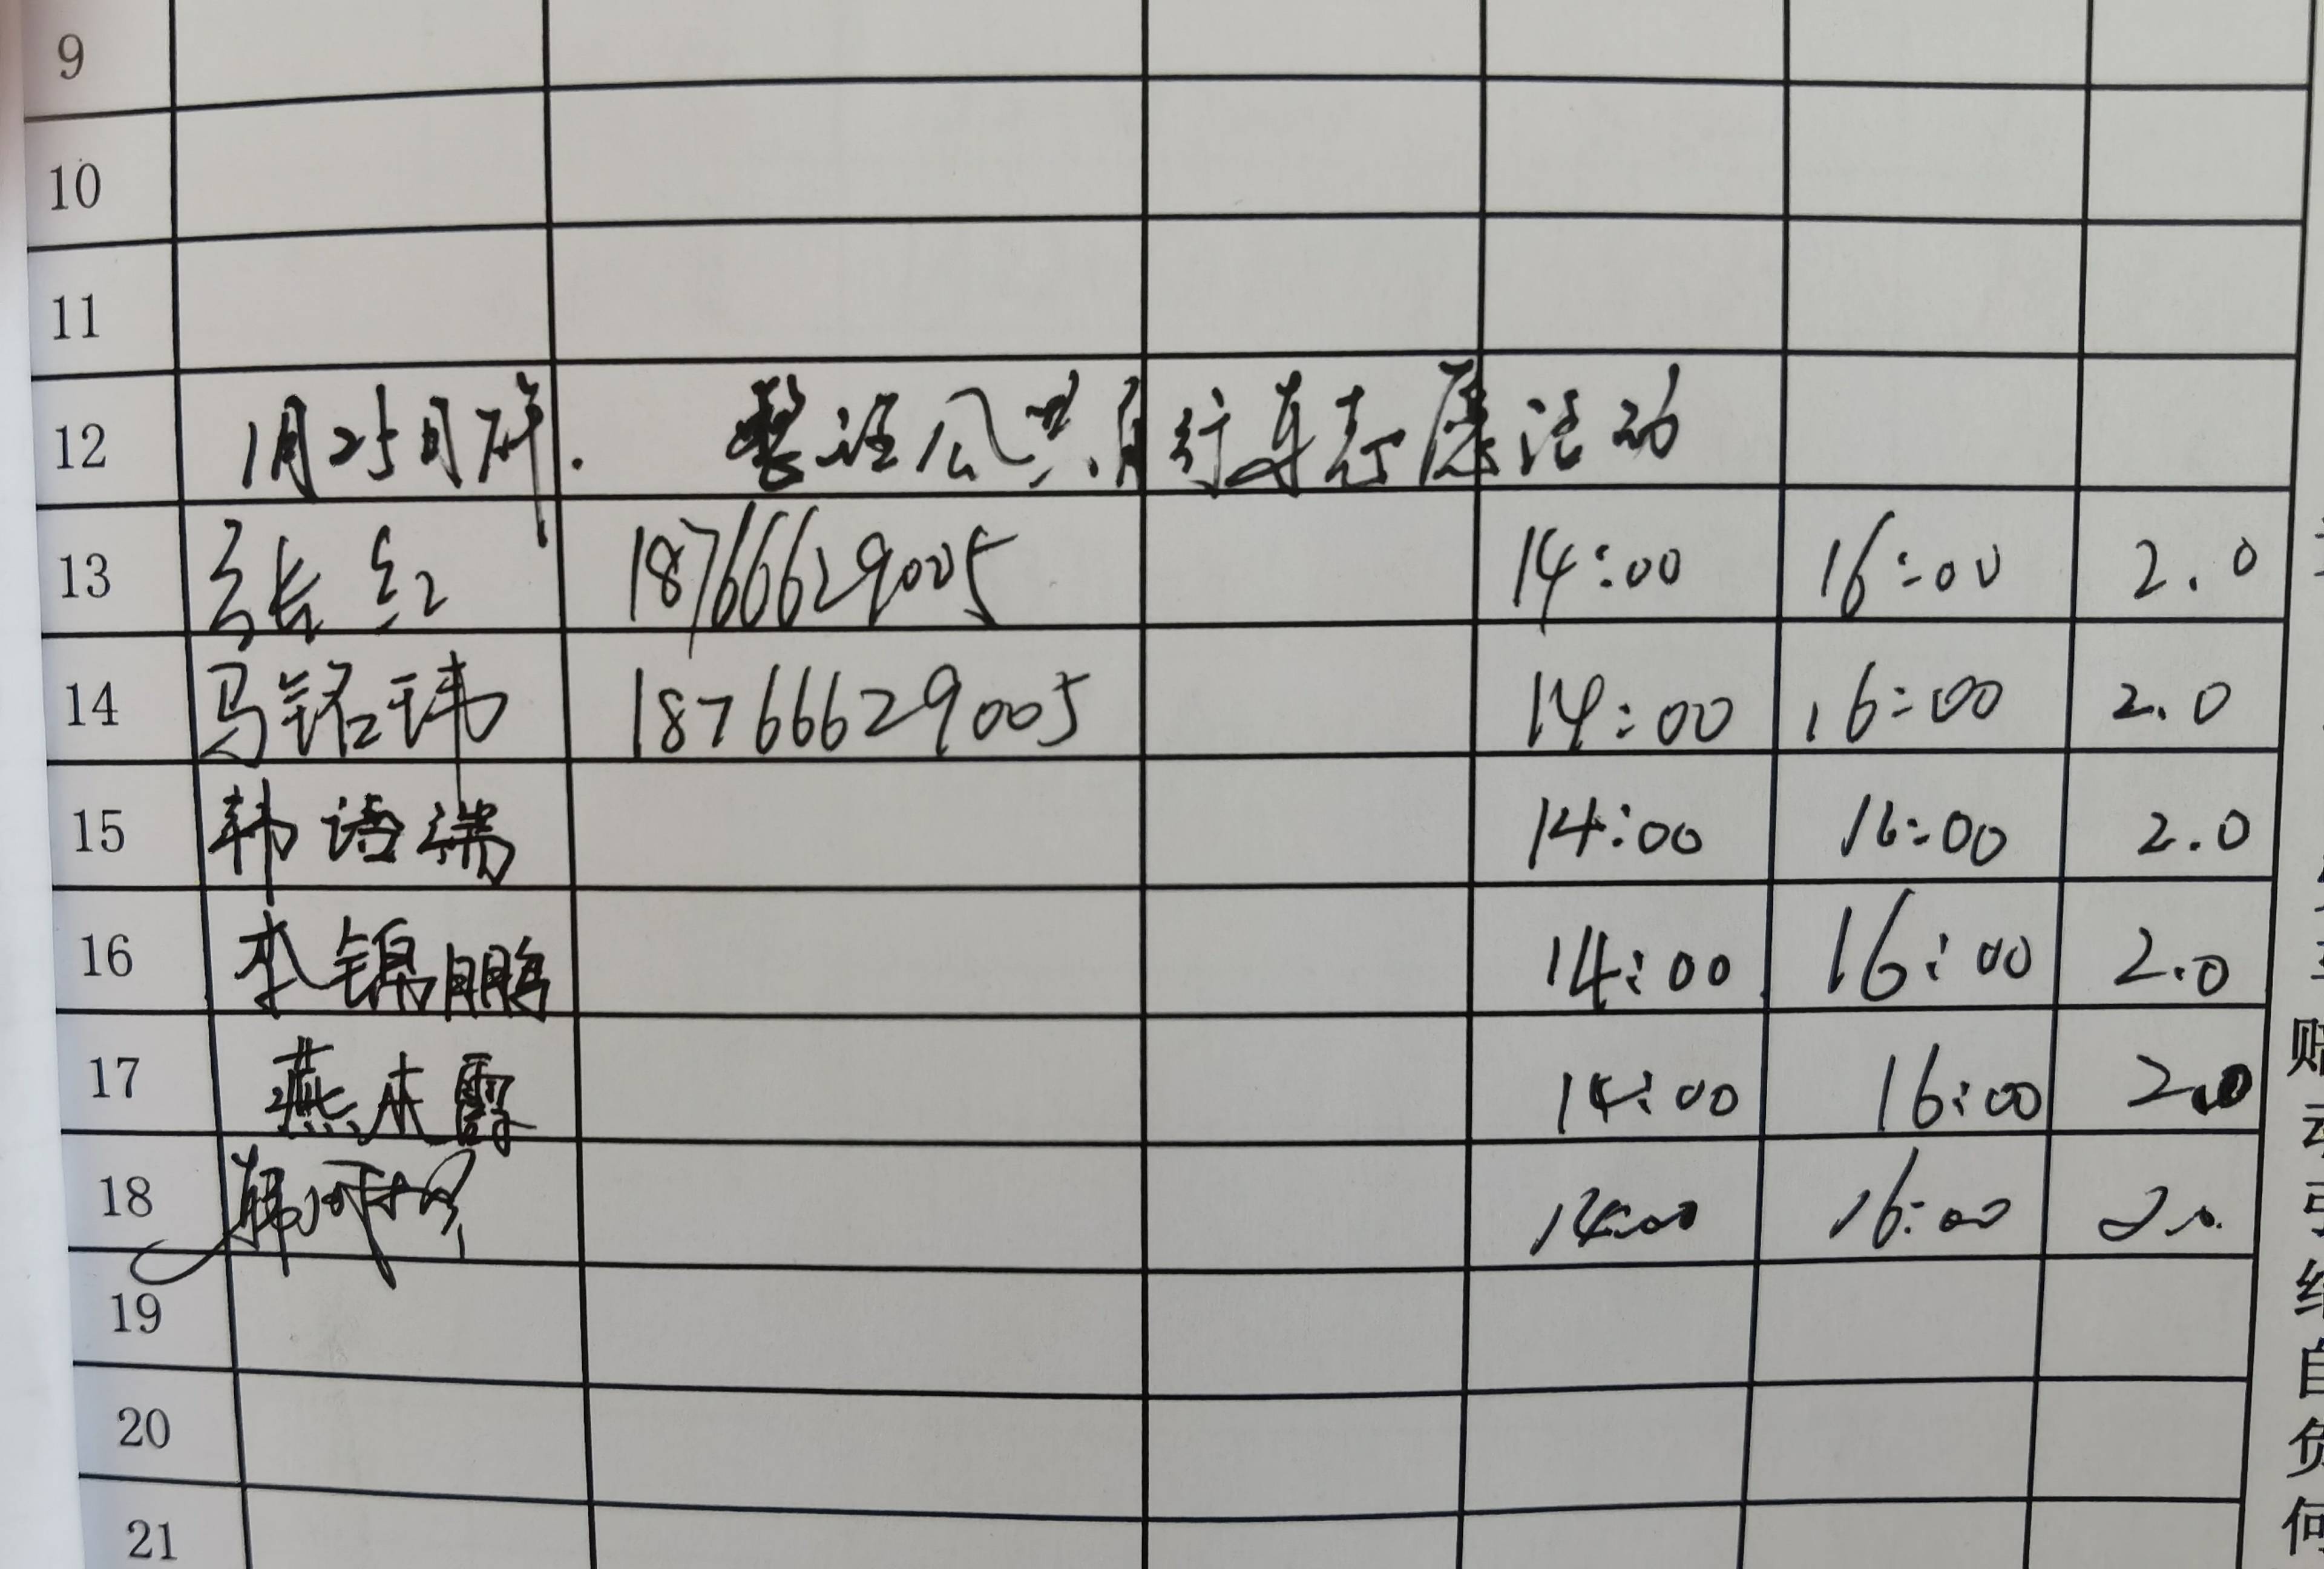 9
10
11
12 1月25日下午. 整治公共自行车志愿活动
13 张红 18766629005 14:00 16:00 2.0
14 马铭玮 18766629005 14:00 16:00 2.0
15 韩语端 14:00 16:00 2.0
16 李锦鹏 14:00 16:00 2.0
17 燕本霖 14:00 16:00 2.0
18 韩 14:00 16:00 2.0
19
20
21
赔
动
引
组
自
负
何